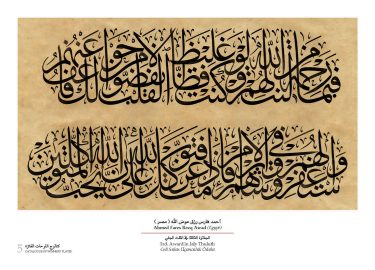 فبما رحمة من الله لنت لهم ولو كنت فظا غليظ القلب لانفضوا من حولك فاعف عنهم
واستغفر لهم وشاورهم في الأمر فإذا عزمت فتوكل على الله إن الله يحب المتوكلين
أحمد فارس رزق عوض الله ( مصر )
Ahmed Fares Rezq Awad (Egypt)
الجائزة الثالثة في الثلث الجلي
3rd. Award in Jaly Thuluth
Celî Sülüs Üçüncülük Ödülü
كتالوج اللوحات الفائزة
CATALOGUE OF WINNERS' PLATES